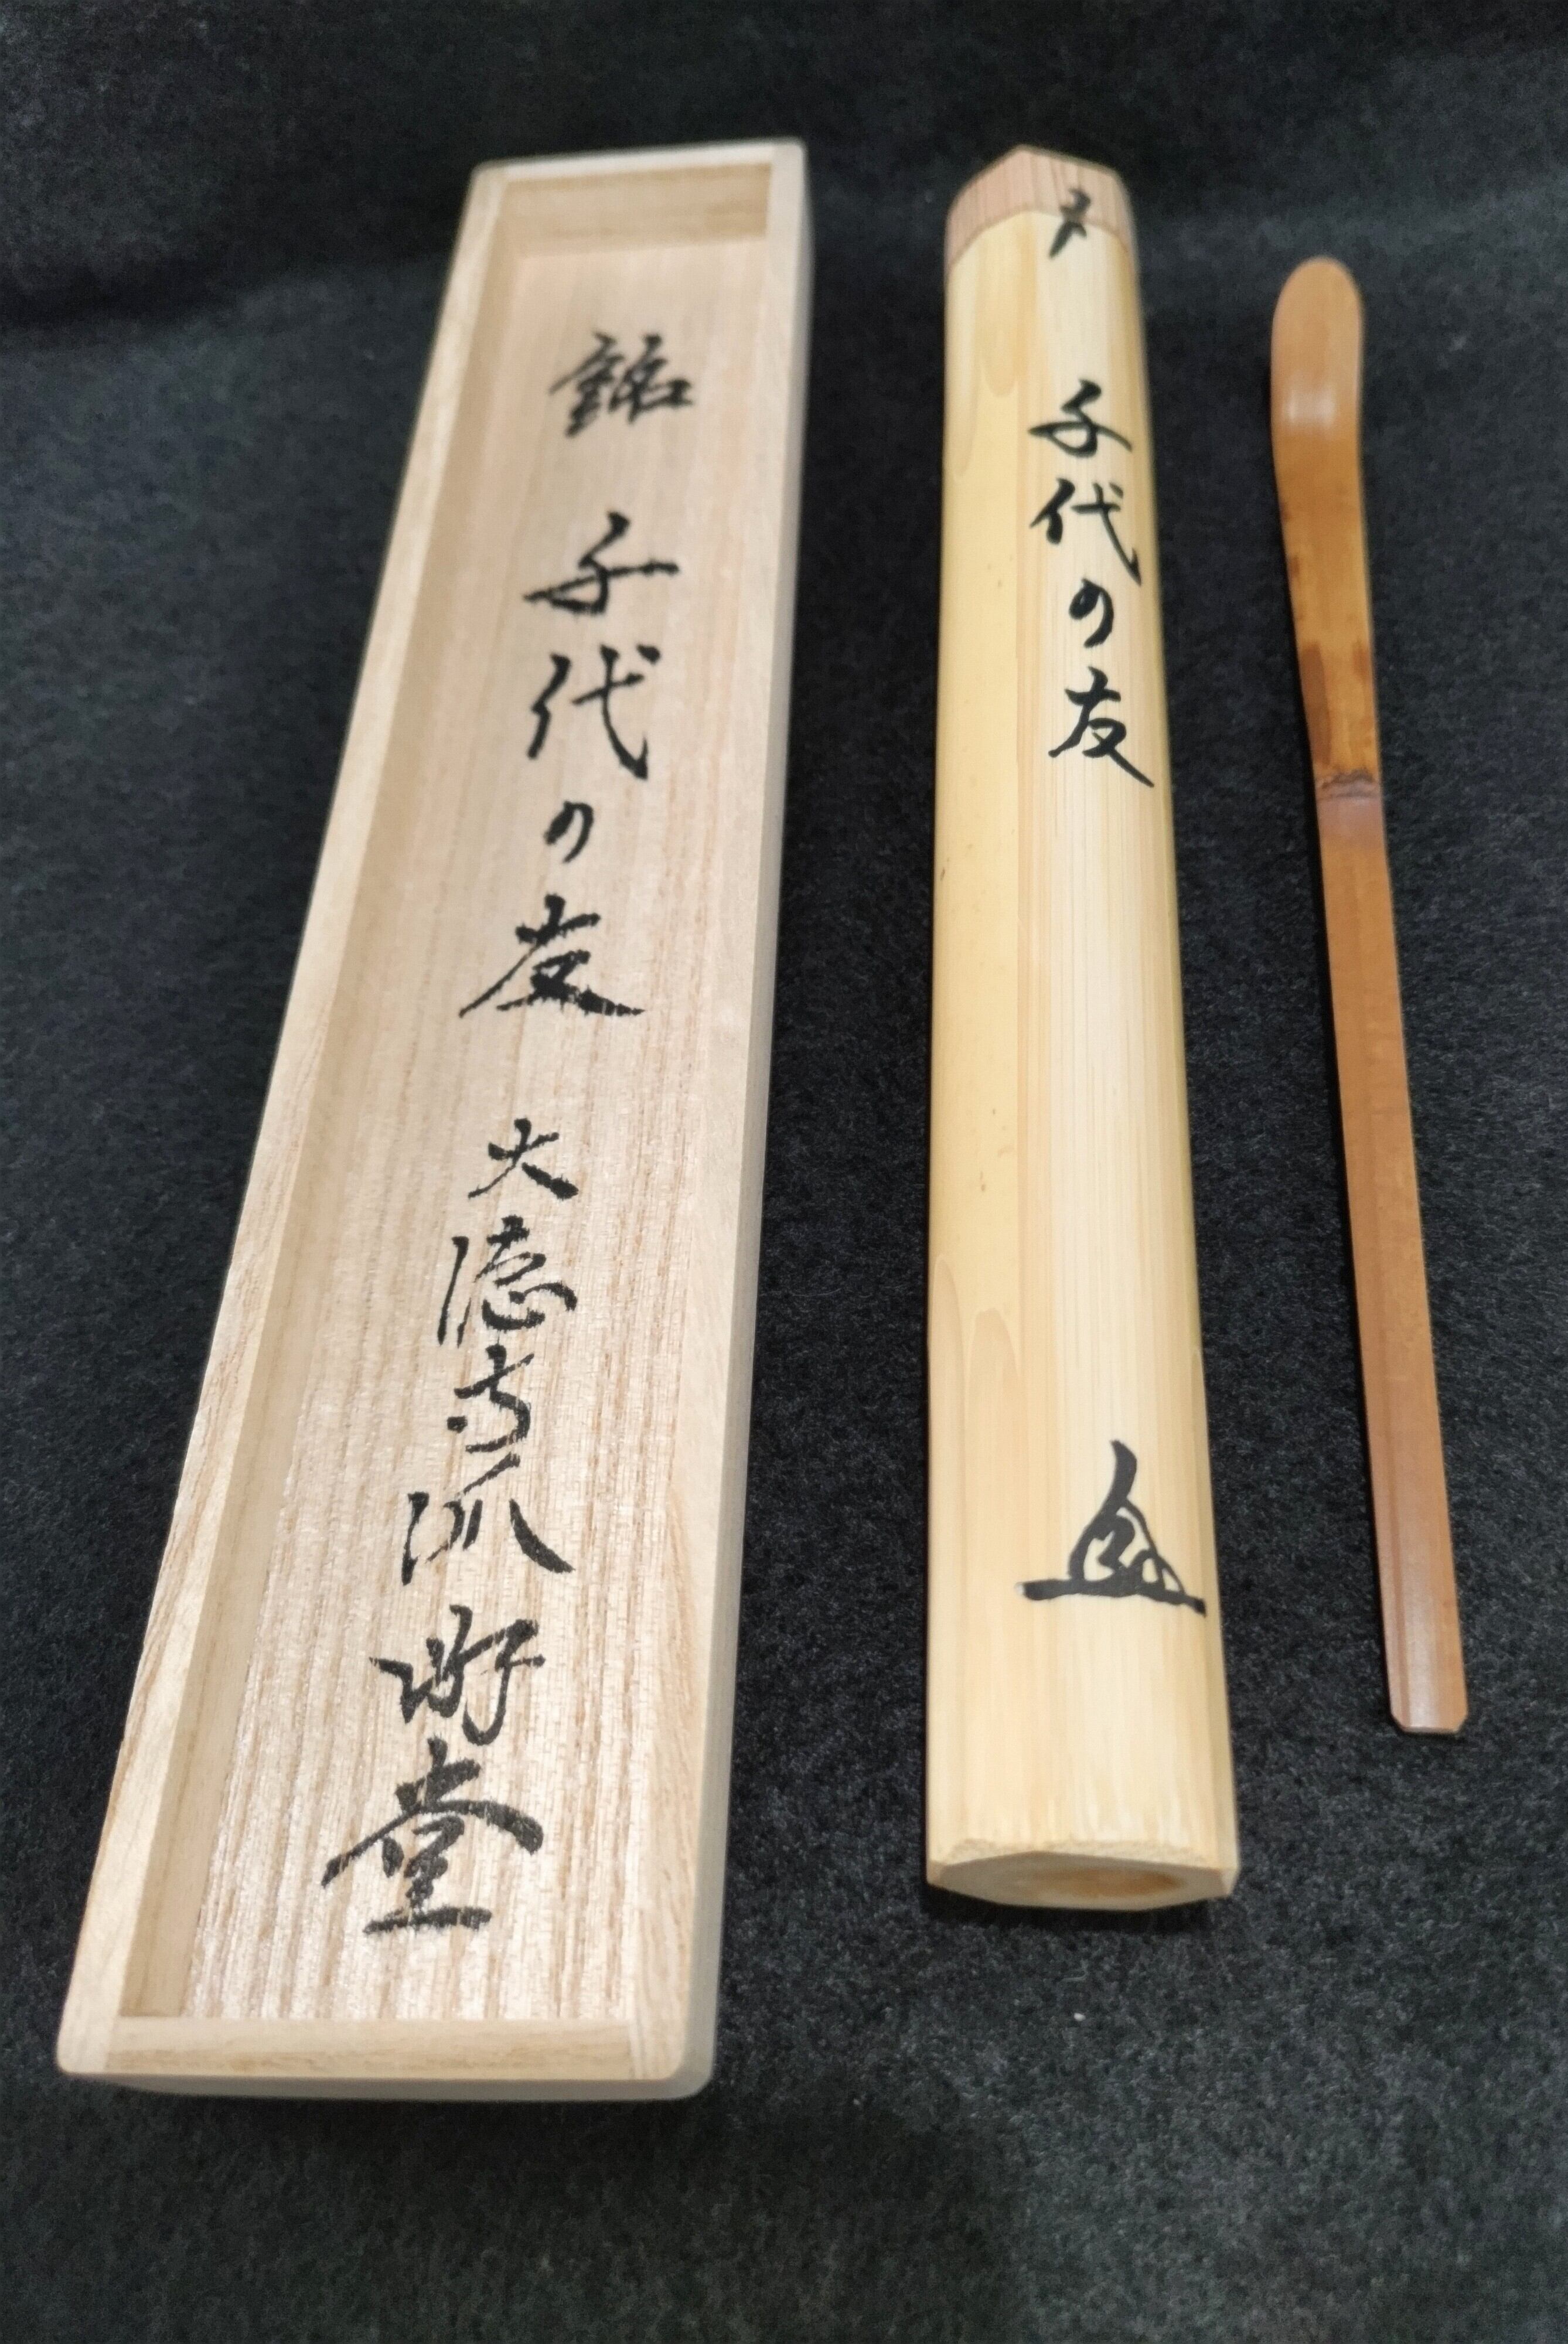 銘 千代の友 大徳寺派 堂
〆
千代の友